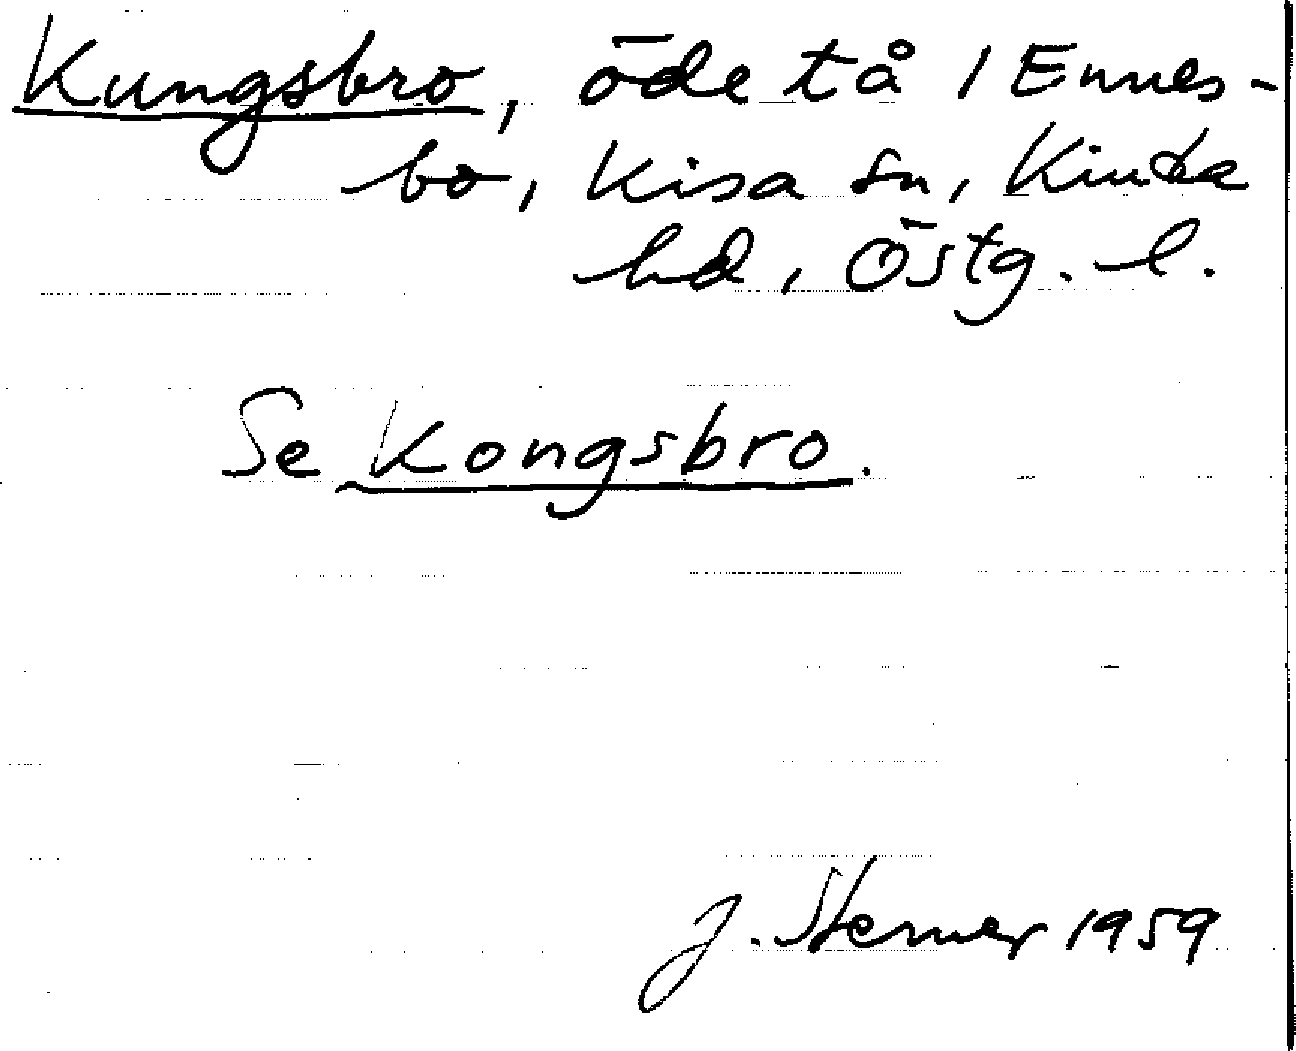 Kungsbro, öde tå / Ennes-
bo, Kisa sn, Kinda
hd, Östg. l.
Se Kongsbro.
J. Sterner 1959